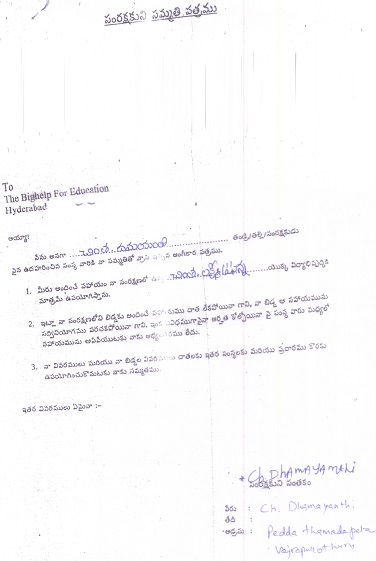 సంరక్షకుని సమ్మతి పత్రము
To
The Bighelp For Education
Hyderabad
అయ్యా:
నేను అనగా చింత దమయంతి తండ్రి/తల్లి/సంరక్షకుడు
పైన ఉదహరించిన సంస్థ వారికి నా సమ్మతితో అంగీకార పత్రము.
1. మీరు అందించే సహాయం నా సంరక్షణలో చింత యొక్క విద్యాభివృద్ధికి
మాత్రమే ఉపయోగిస్తాను.
2. ఇట్లా నా సంరక్షణలోని బిడ్డకు అందించే సహాయము దాత లేకపోయినా గాని, నా బిడ్డ ఆ సహాయమును
సద్వినియోగము పరచకపోయినా గాని, అర్హత కోల్పోయినా పై సంస్థ వారు మధ్యలో
సహాయమును ఆపివేయుటకు నాకు లేదు.
3. నా వివరములు మరియు నా బిడ్డల వివరములు దాతలకు ఇతర సంస్థలకు మరియు ప్రచారము కొరకు
ఉపయోగించుకొనుటకు నాకు సమ్మతము.
ఇతర వివరములు ఏమైనా :-
* Ch. DHAMAYANthi
సంరక్షకుని సంతకం
పేరు : Ch. Dhamayanthi
తేది :
అడ్రసు : Pedda thamadapeta